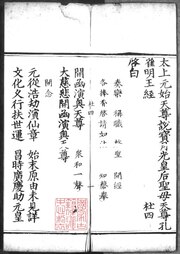 太上元始天尊說寶月光皇后聖母天尊孔
雀明王經 杜四
啓白
奏樂 聖 開經
杜四
開函演奧天尊 衆和一聲
大慈悲開函演奧天尊
開念
元從浩劫演仙章 始末原由未見詳
文化久行扶世運 昌時廣慶助元皇